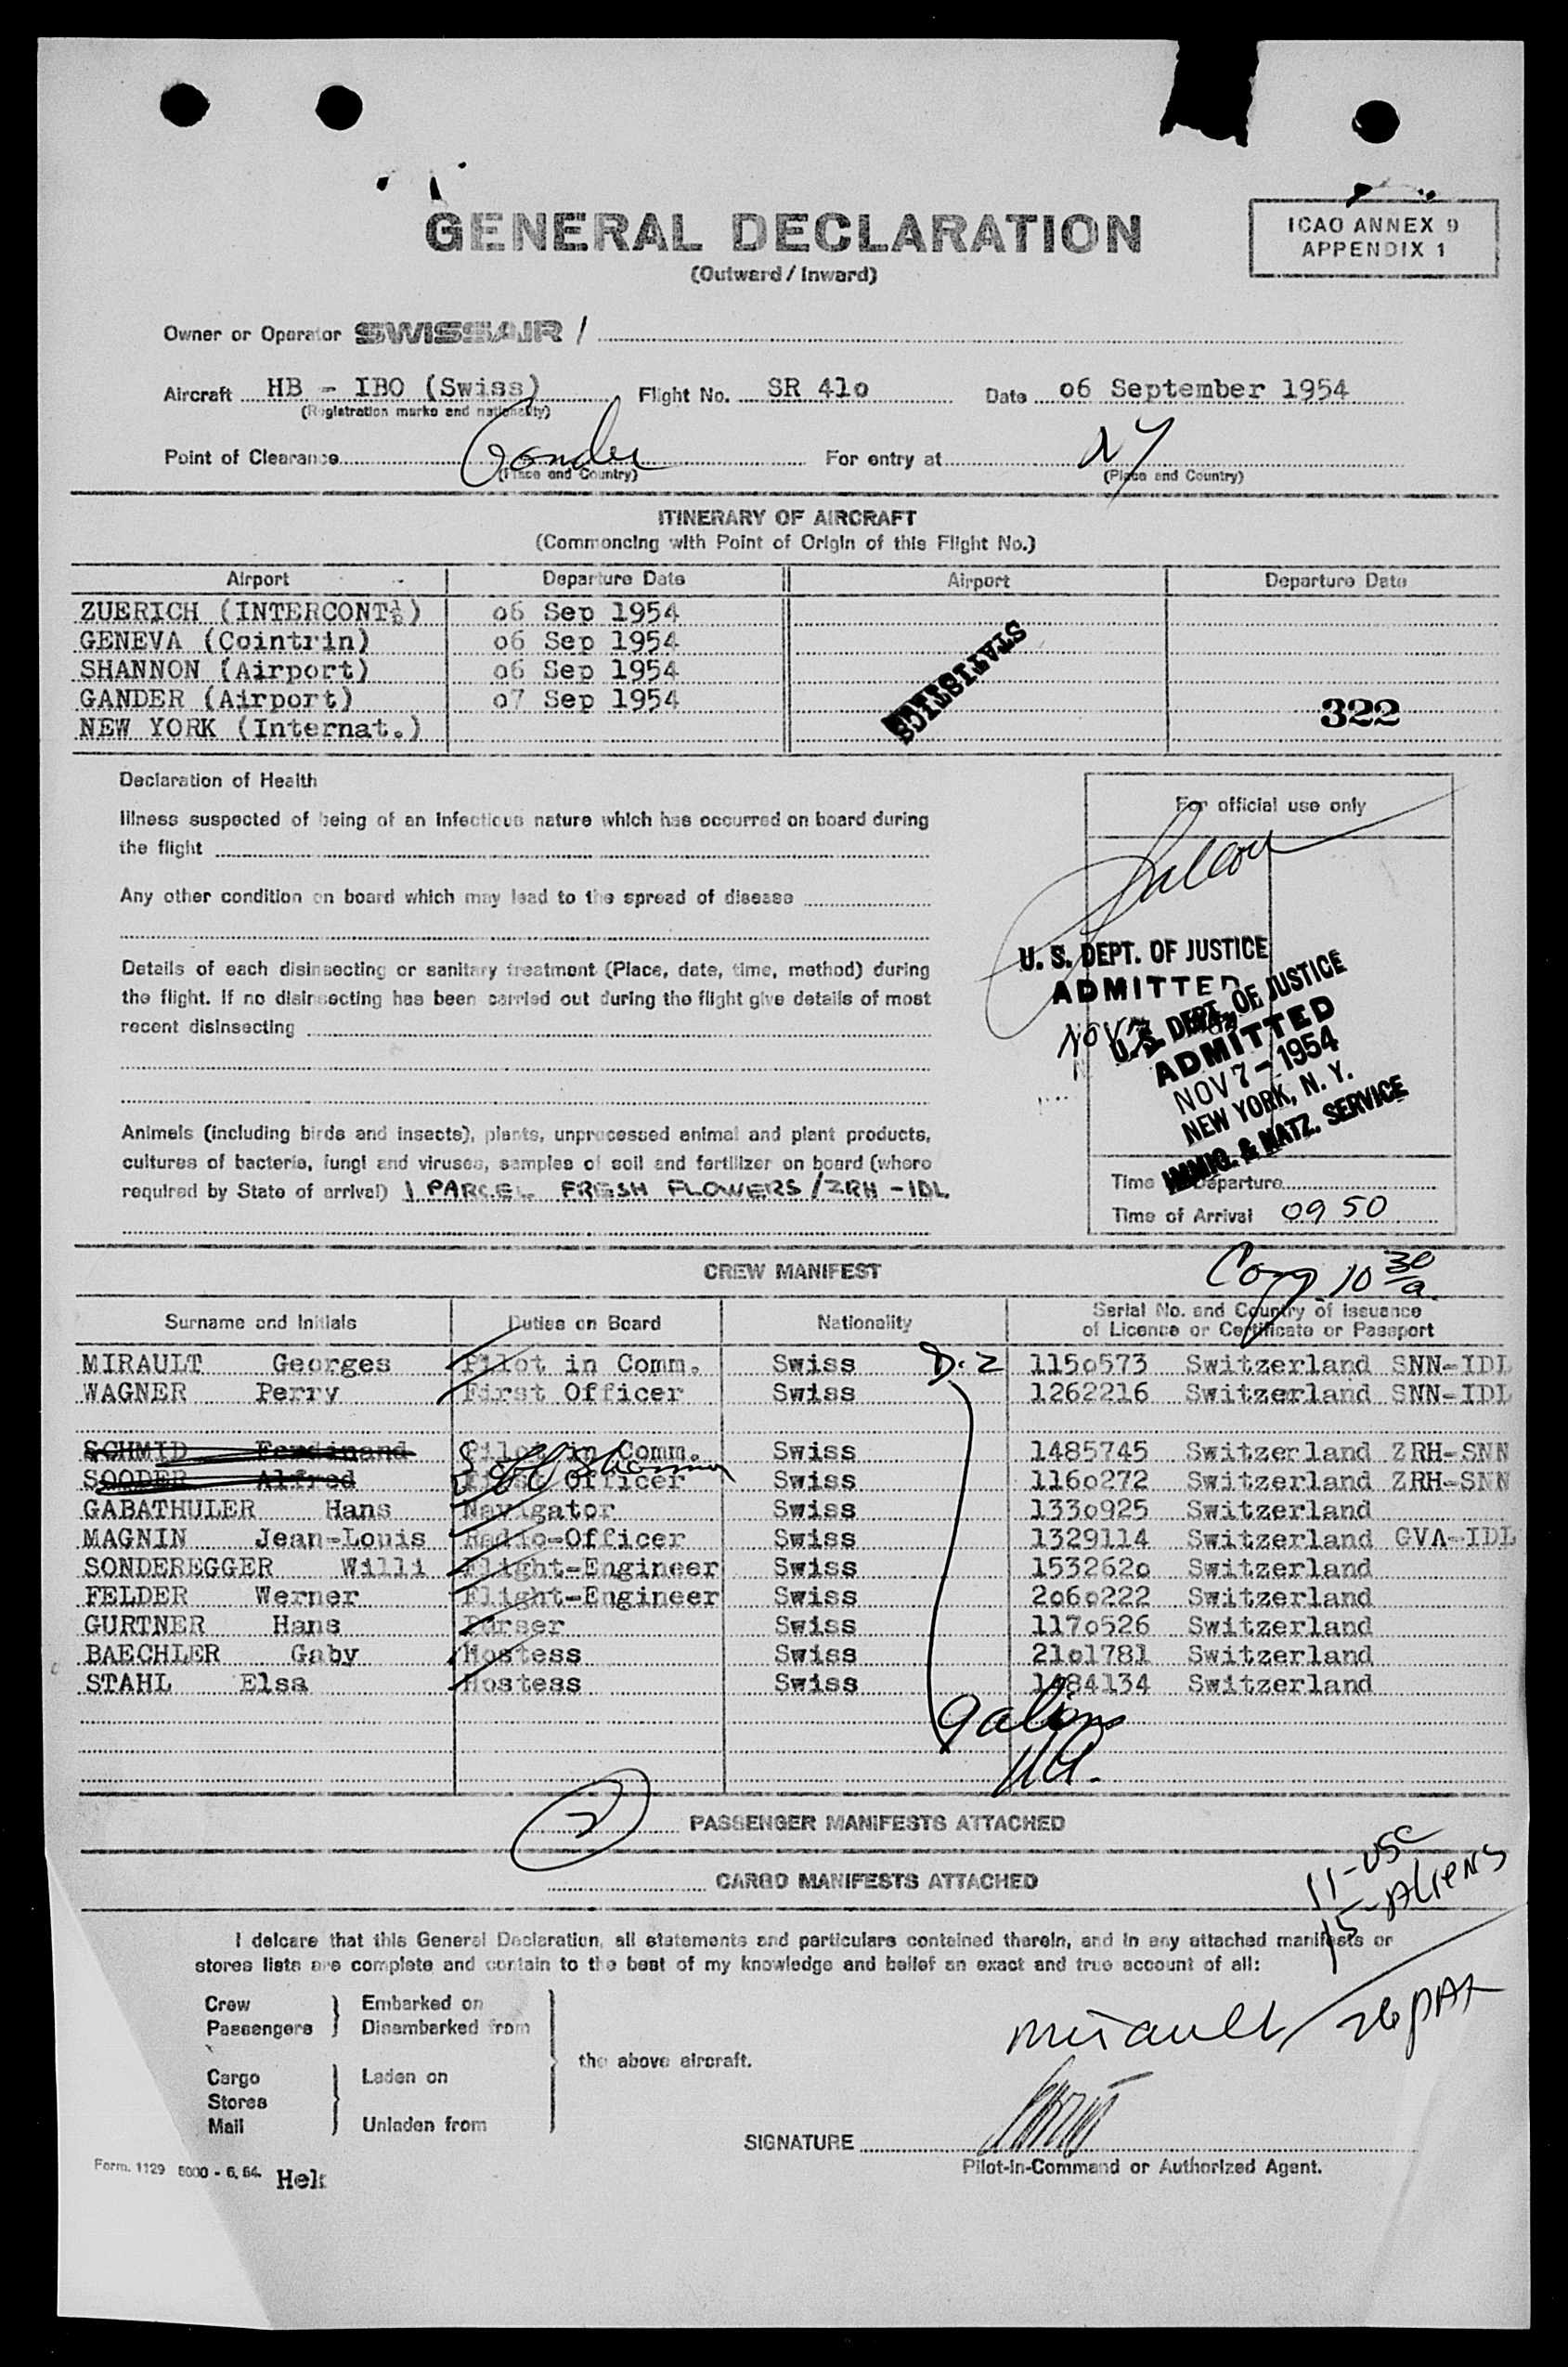 GENERAL DECLARATION
(Outward / Inward)
ICAO ANNEX 9
APPENDIX 1
Owner or Operator SWISSAIR /
Aircraft HB - IBO (Swiss) Flight No. SR 41o Date o6 September 1954
(Registration marks and nationality)
Point of Clearance Gander For entry at NY
(Place and Country) (Place and Country)
ITINERARY OF AIRCRAFT
(Commencing with Point of Origin of this Flight No.)
Airport Departure Date Airport Departure Date
ZUERICH (INTERCONT) o6 Sep 1954
GENEVA (Cointrin) o6 Sep 1954
SHANNON (Airport) o6 Sep 1954
GANDER (Airport) o7 Sep 1954
NEW YORK (Internat.)
STATISTICS
322
Declaration of Health
Illness suspected of being of an infectious nature which has occurred on board during
the flight
Any other condition on board which may lead to the spread of disease
Details of each disinsecting or sanitary treatment (Place, date, time, method) during
the flight. If no disinsecting has been carried out during the flight give details of most
recent disinsecting
Animals (including birds and insects), plants, unprocessed animal and plant products,
cultures of bacteria, fungi and viruses, samples of soil and fertilizer on board (where
required by State of arrival) 1 PARCEL FRESH FLOWERS / ZRH - IDL
For official use only
U. S. DEPT. OF JUSTICE
ADMITTED
NOV 7
U. S. DEPT. OF JUSTICE
ADMITTED
NOV 7 - 1954
NEW YORK, N. Y.
IMMIG. & NATZ. SERVICE
Time of Departure
Time of Arrival 09 50
10 30/a.
CREW MANIFEST
Surname and Initials Duties on Board Nationality Serial No. and Country of Issuance
of Licence or Certificate or Passport
MIRAULT Georges Pilot in Comm. Swiss D-2 115o573 Switzerland SNN-IDL
WAGNER Perry First Officer Swiss 1262216 Switzerland SNN-IDL
SCHMID Ferdinand Pilot in Comm. Swiss 1485745 Switzerland ZRH-SNN
SOODER Alfred First Officer Swiss 116o272 Switzerland ZRH-SNN
GABATHULER Hans Navigator Swiss 133o925 Switzerland
MAGNIN Jean-Louis Radio-Officer Swiss 1329114 Switzerland GVA-IDL
SONDEREGGER Willi Flight-Engineer Swiss 153262o Switzerland
FELDER Werner Flight-Engineer Swiss 2o6o222 Switzerland
GURTNER Hans Purser Swiss 117o526 Switzerland
BAECHLER Gaby Hostess Swiss 21o1781 Switzerland
STAHL Elsa Hostess Swiss 1484134 Switzerland
9 aliens
2 PASSENGER MANIFESTS ATTACHED
CARGO MANIFESTS ATTACHED
11-USC
15-Aliens
26 PAX
I delcare that this General Declaration, all statements and particulars contained therein, and in any attached manifests or
stores lists are complete and contain to the best of my knowledge and belief an exact and true account of all:
Crew Embarked on
Passengers Disembarked from
the above aircraft.
Cargo Laden on
Stores
Mail Unladen from
Mirault
SIGNATURE
Pilot-in-Command or Authorized Agent.
Form. 1129 5000 - 6. 54. Hek